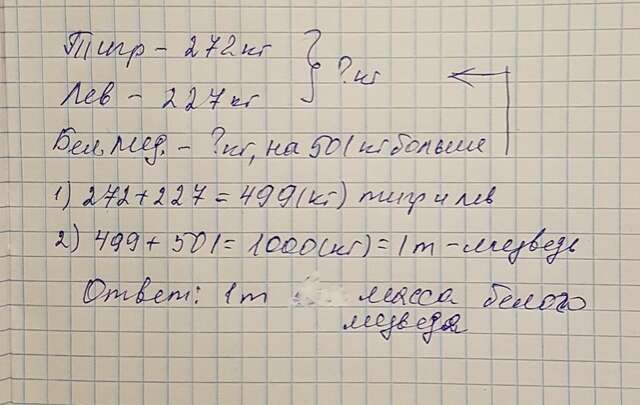 Тигр – 272кг
?кг
Лев – 227кг
Бел. мед. – ?кг, на 501кг больше
1) 272+227 = 499(кг) тигр и лев
2) 499+501= 1000(кг)=1т – медведь
Ответ: 1т масса белого
медведя